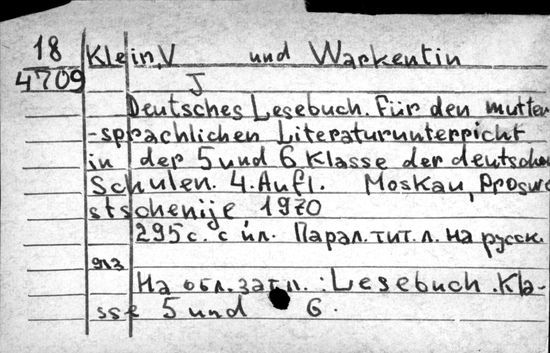 18
4709
Klein, V und Warkentin
J
Deutsches Lesebuch. Für den mutter
-sprachlichen Literaturunterricht
in der 5 und 6 Klasse der deutschen
Schulen. 4. Aufl. Moskau, Proswe
stschenije, 1970
295 с. с ил. Парал. тит. л. на русск.
яз
На обл. загл. : Lesebuch. Kla-
sse 5 und 6.